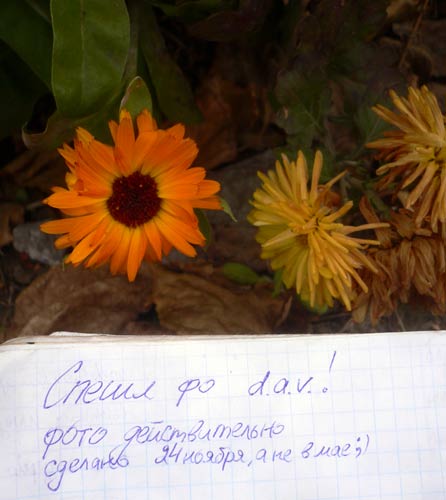 Спешл фо d.a.v.!
фото действительно
сделано 24 ноября, а не в мае ;)